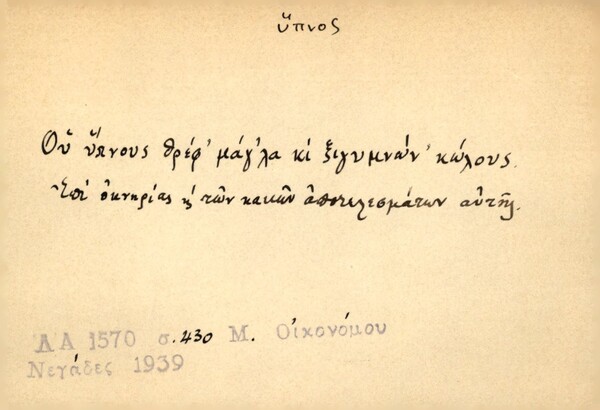 ὕπνος
Οὗ ὕπνους θρέφ' μάγ'λα κὶ ξιγυμνών' κώλους.
Ἐπὶ ὀκνηρίας κ' τῶν κακῶν ἀποτελεσμάτων αὐτῆς.
ΛΑ 1570 σ. 430 Μ. Οἰκονόμου
Νεγάδες 1939